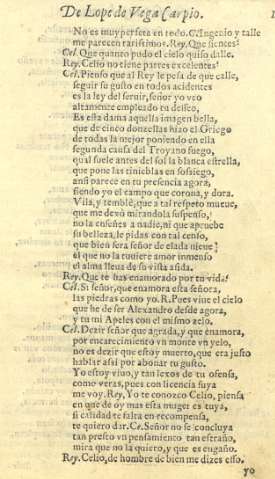 De Lope de Vega Carpio.
No es muy perfeta en todo. C. Ingenio y talle
me parecen rarissimos. Rey. Que sientes?
Cel. Que quanto pudo el cielo quiso dalle.
Rey. Celio no tiene partes excelentes?
Cel. Pienso que al Rey le pesa de que calle,
seguir su gusto en todos acidentes
es la ley del seruir, señor yo veo
altamente empleado tu desseo.
Es esta dama aquella imagen bella,
que de cinco donzellas hizo el Griego
de todas la mejor poniendo en ella
segunda causa del Troyano fuego,
qual suele antes del sol la blanca estrella,
que pone las tinieblas en sossiego,
ansi parece en tu presencia agora,
siendo yo el campo que corona, y dora.
Vila, y temblè, que a tal respeto mueue,
que me dexò mirandola suspenso,
no la enseñes a nadie, ni que aprueue
su belleza, le pidas con tal censo,
que bien serà señor de elada nieue
el que no la tuuiere amor inmenso
el alma llena de su vista asida.
Rey. Que te has enamorado por tu vida?
Cel. Si señor, que enamora esta señora,
las piedras como yo. R. Pues viue el cielo
que he de ser Alexandro desde agora,
y tu mi Apeles con el mismo zelo.
Cel. Dezir señor que agrada, y que enamora,
por encarecimiento vn monte vn yelo,
no es dezir que estoy muerto, que era justo
hablar assi por abonar tu gusto.
Yo estoy viuo, y tan lexos de tu ofensa,
como veras, pues con licencia suya
me voy. Rey, Yo te conozco Celio, piensa
en que de oy mas esta muger es tuya,
si calidad te falta en recompensa,
te quiero dar. Ce. Señor no se concluya
tan presto vn pensamiento tan estraño,
mira que no la quiero, y que es engaño.
Rey. Celio, de hombre de bien me dizes esso.
yo